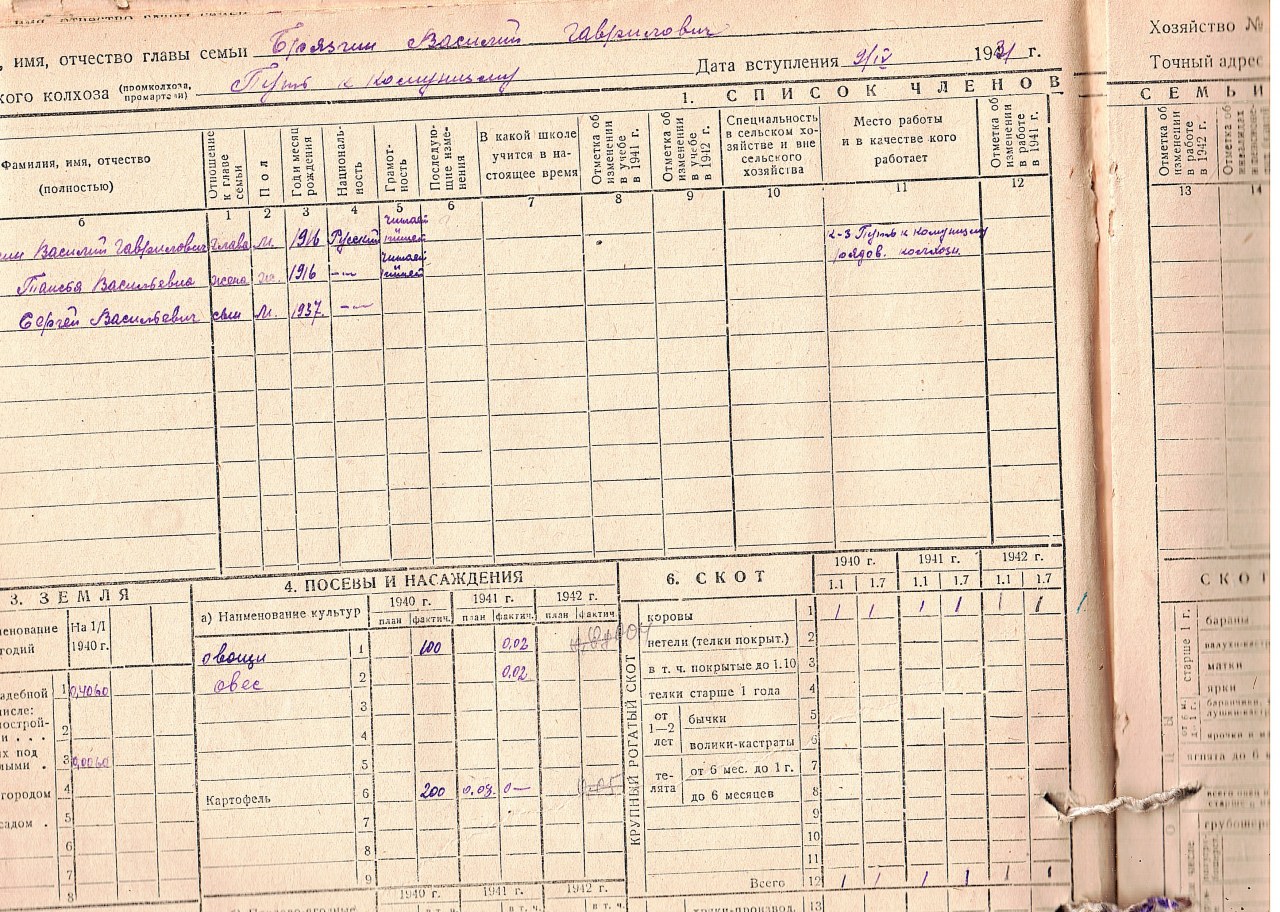 имя, отчество главы семьи
, имя, отчество главы семьи Брязгин Василий Гаврилович
кого колхоза (промколхоза, промартели) Путь к комунизму
Дата вступления 9/IV 1931 г.
1. СПИСОК ЧЛЕНОВ
СЕМЬИ
Хозяйство №
Точный адрес
Фамилия, имя, отчество (полностью)
Отношение к главе семьи
Пол
Год и месяц рождения
Националь-ность
Грамот-ность
Последую-щие изме-нения
В какой школе учится в на-стоящее время
Отметка об изменении в учебе в 1941 г.
Отметка об изменении в учебе в 1942 г.
Специальность в сельском хо-зяйстве и вне сельского хозяйства
Место работы и в качестве кого работает
Отметка об изменении в работе в 1941 г.
Отметка об изменении в работе в 1942 г.
Отметка об
б 1 2 3 4 5 6 7 8 9 10 11 12 13 14
Василий Гаврилович глава м. 1916 Русский читает пишет к-з Путь к комунизму рядов. колхозн.
Таисья Васильевна жена ж. 1916 -"- читает пишет
Сергей Васильевич сын м. 1937. -"-
3. ЗЕМЛЯ
менование годий
На 1/I 1940 г.
адебной 1 0,4060
числе:
острой-
и . . . 2
х под
лыми . 3 0,0060
городом 4
садом . 5
6
7
8
4. ПОСЕВЫ И НАСАЖДЕНИЯ
а) Наименование культур
1940 г. 1941 г. 1942 г.
план фактич. план фактич. план фактич.
овощи 1 100 0,02
овес 2 0.02
3
4
5
Картофель 6 200 0.03. 0—
7
8
9
1940 г. 1941 г. 1942 г.
6. СКОТ
1940 г. 1941 г. 1942 г.
1.1 1.7 1.1 1.7 1.1 1.7
КРУПНЫЙ РОГАТЫЙ СКОТ
коровы 1 1 1 1 1 1 1
нетели (телки покрыт.) 2
в т. ч. покрытые до 1.10 3
телки старше 1 года 4
от 1—2 лет
бычки 5
волики-кастраты 6
те-лята
от 6 мес. до 1 г. 7
до 6 месяцев 8
9
10
11
Всего 12 1 1 1 1 1 1
13
СКОТ
старше 1 г.
бараны
матки
ярки